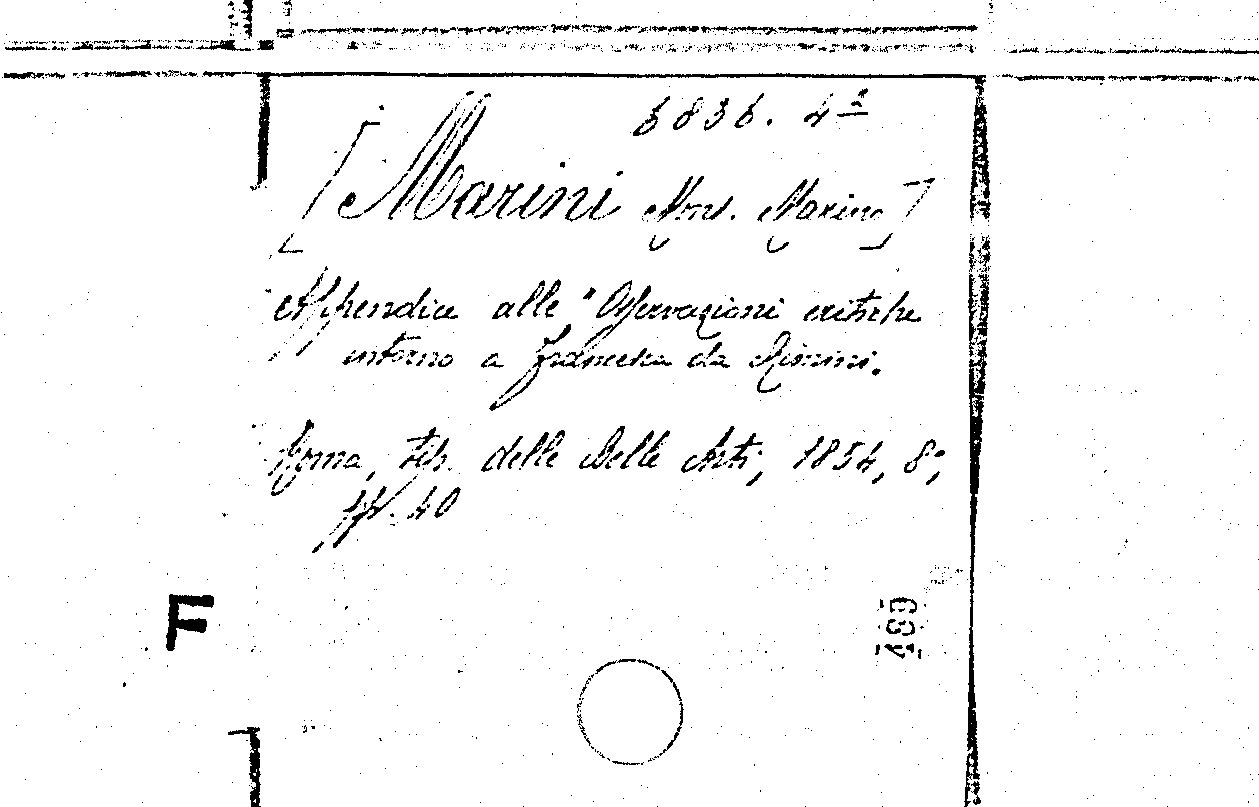 6836. 4ª
[Marini Mons. Marino]
Appendice alle "Osservazioni critiche
intorno a Francesca da Rimini.
Roma, tip. delle Belle Arti, 1854, 8°,
pp. 40
F
489